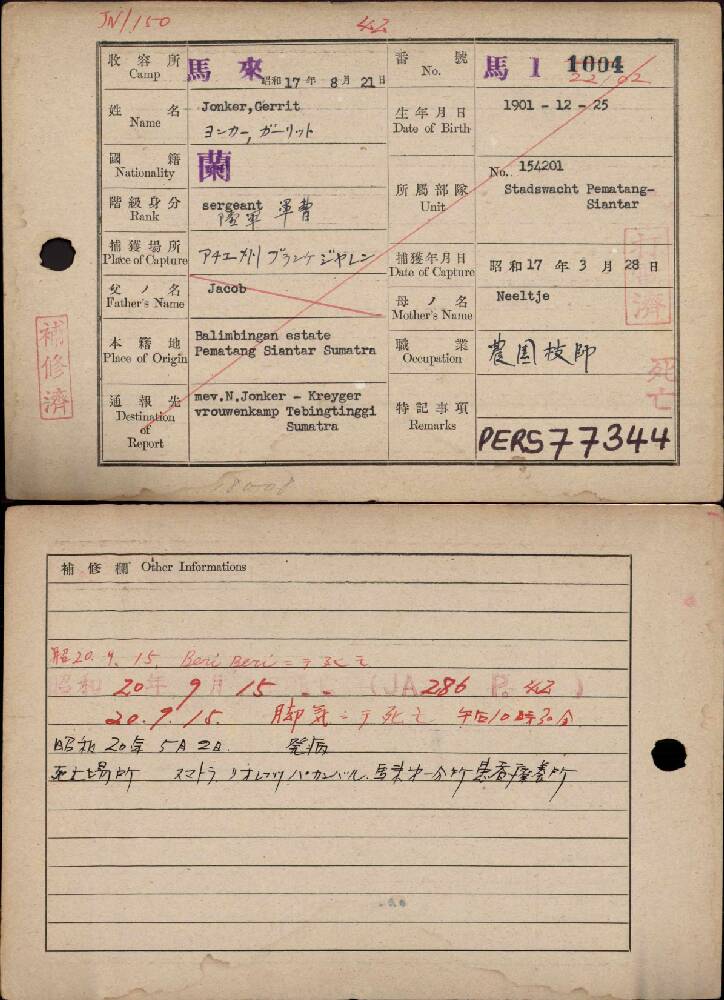 JN/150
42
收容所 Camp 馬來 昭和17年8月21日
番號 No. 馬 1 1004
22/02
姓名 Name Jonker,Gerrit
ヨンカー,ガーリット
生年月日 Date of Birth 1901 - 12 - 25
國籍 Nationality 蘭
階級身分 Rank sergeant
陸軍 軍曹
所屬部隊 Unit No. 154201
Stadswacht Pematang-
Siantar
捕獲場所 Place of Capture アチエ州 ブランケジヤレン
捕獲年月日 Date of Capture 昭和17年3月28日
父ノ名 Father's Name Jacob
母ノ名 Mother's Name Neeltje
本籍地 Place of Origin Balimbingan estate
Pematang Siantar Sumatra
職業 Occupation 農園技師
通報先 Destination of Report mev.N.Jonker - Kreyger
vrouwenkamp Tebingtinggi
Sumatra
特記事項 Remarks
PERS77344
補修濟
死亡
補修欄 Other Informations
昭20.9.15. Beri Beri ニテ死亡
昭和20年9月15 (JA286 P.42)
20.9.15. 脚気ニテ死亡 午后10時30分
昭和20年5月2日. 発病
死亡場所 スマトラ リオ パカンバル.馬来分一分所患者療養所